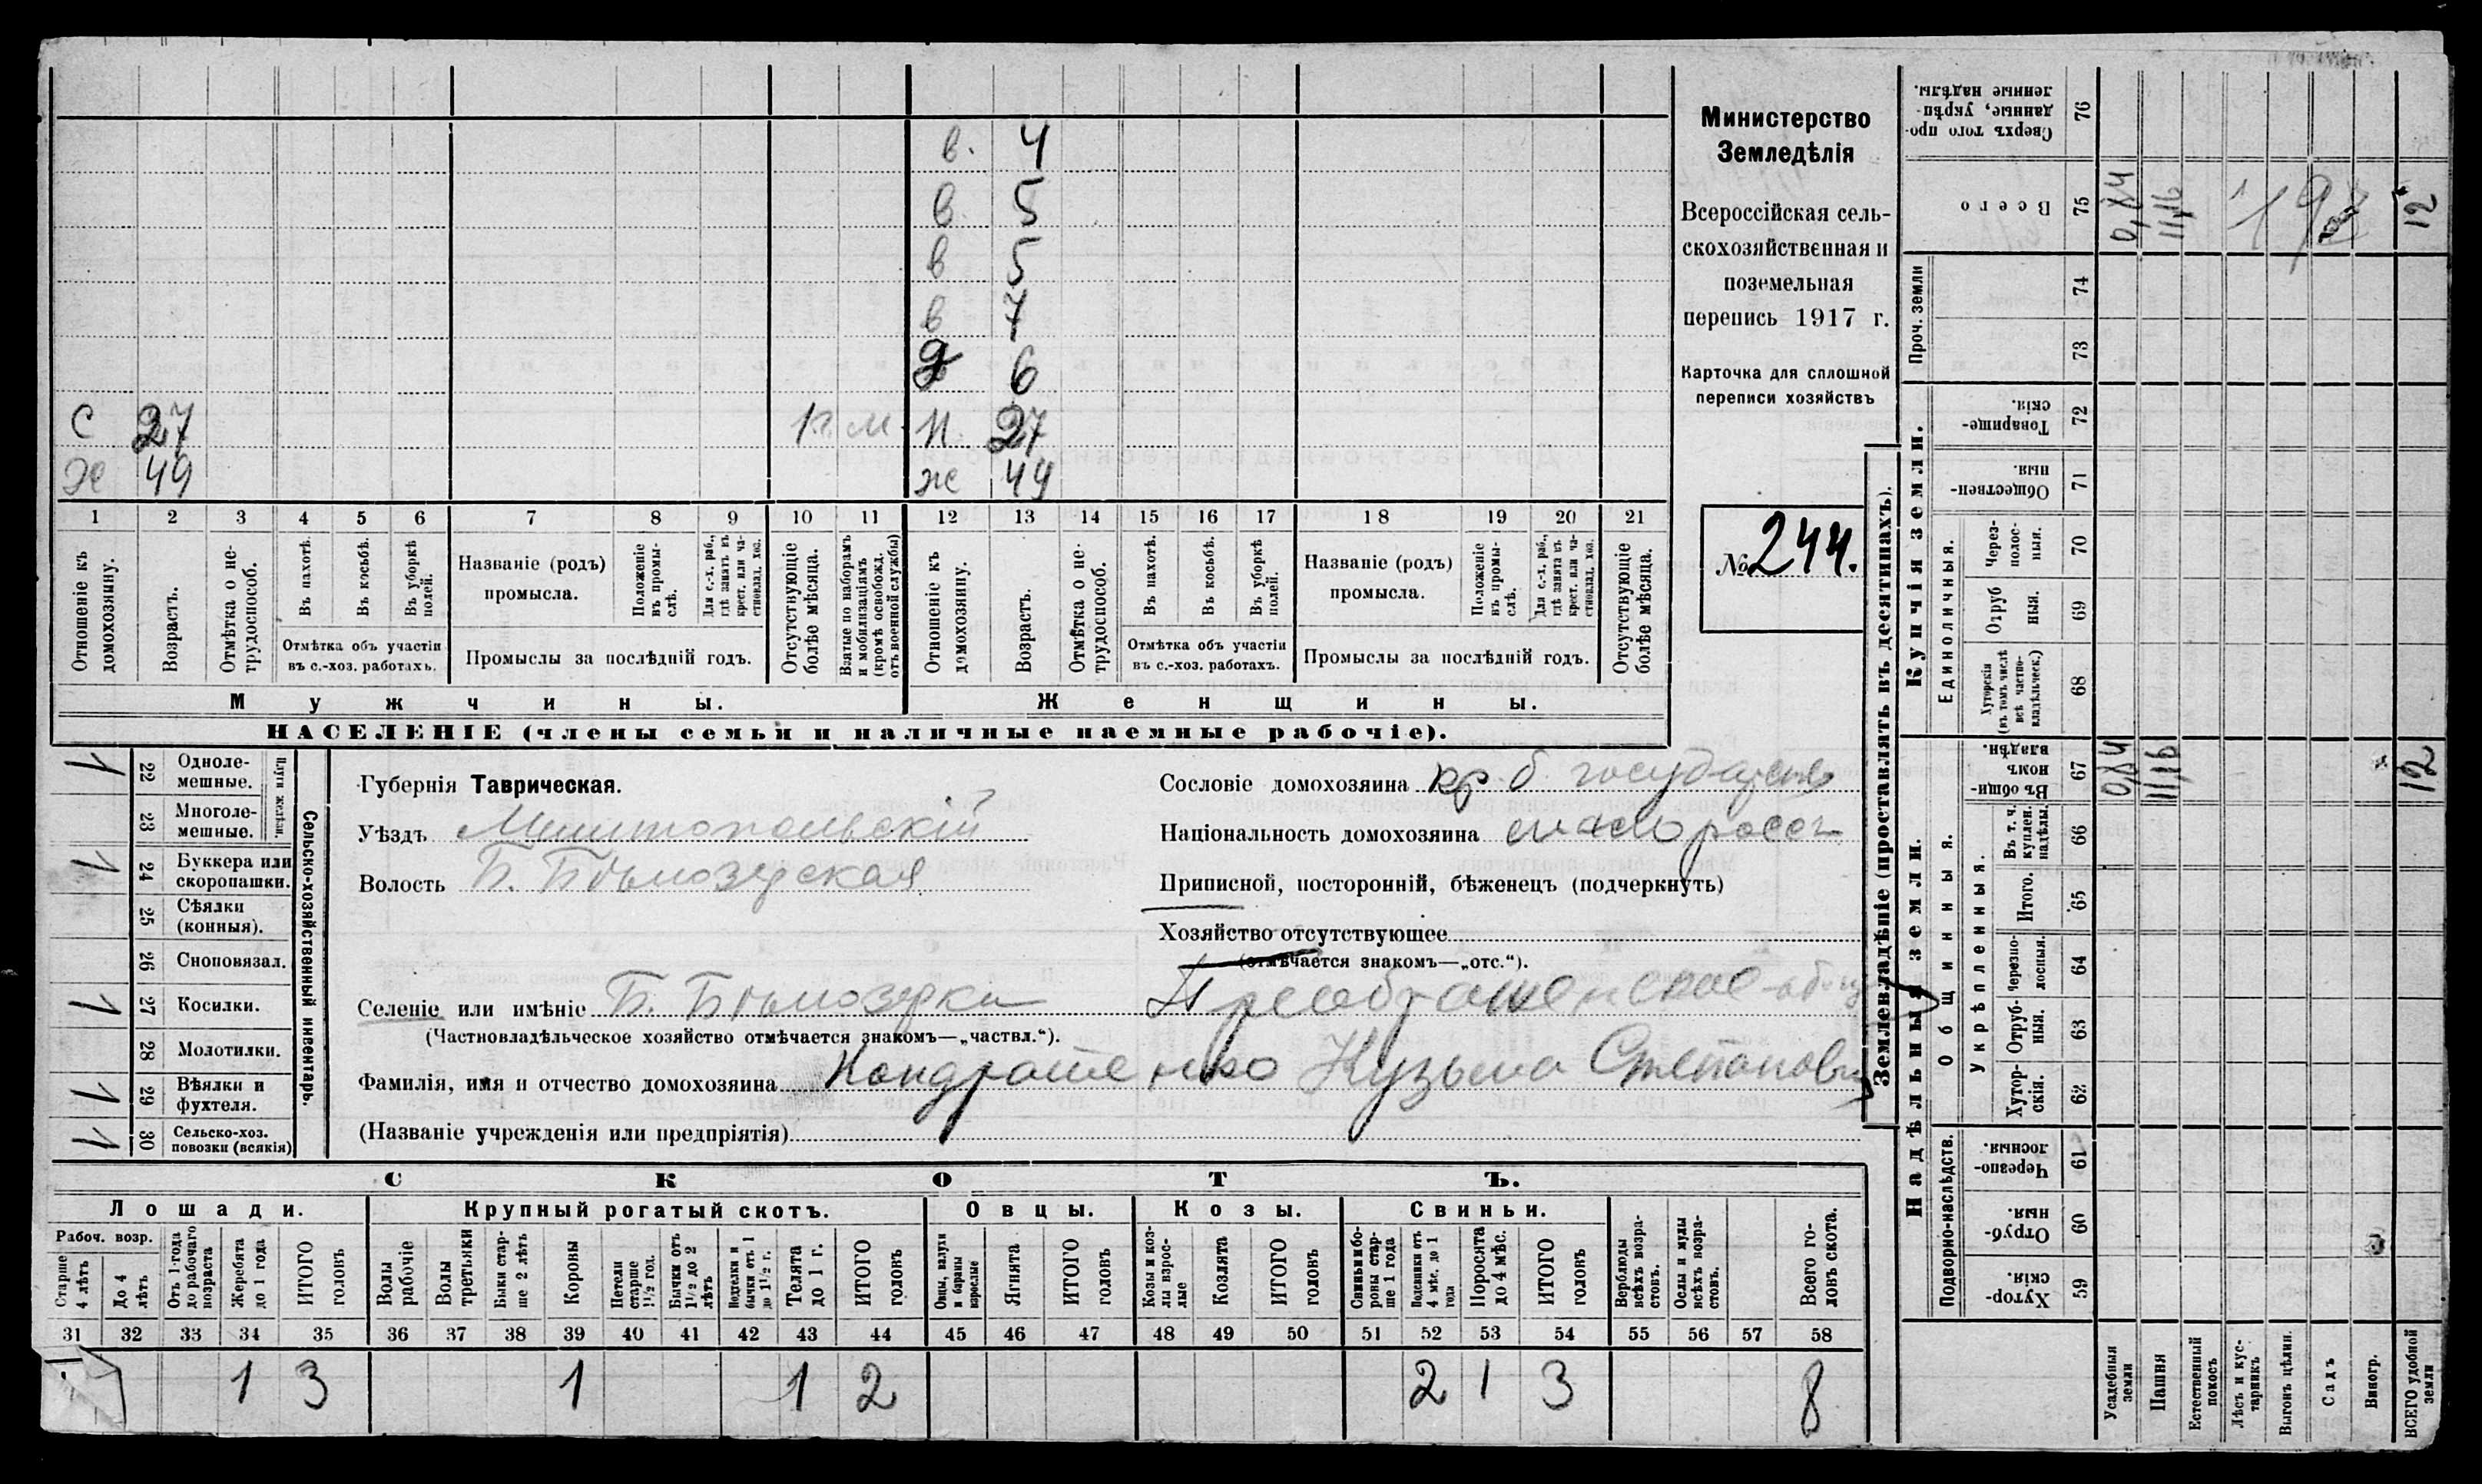 в. 4
в 5
в 5
в 7
д 6
с 27 1 г. м. н. 27
Х 49 ж 49
1 2 3 4 5 6 7 8 9 10 11 12 13 14 15 16 17 18 19 20 21
Отношеніе къ домохозяину.
Возрастъ.
Отмѣтка о нетрудоспособ.
Въ пахотѣ.
Въ косьбѣ.
Въ уборкѣ полей.
Отмѣтка объ участіи въ с.-хоз. работахъ.
Названіе (родъ) промысла.
Положеніе въ промыслѣ.
Для с.-х. раб., гдѣ занятъ въ крест. или частновлад. хоз.
Промыслы за послѣдній годъ.
Отсутствующіе болѣе мѣсяца.
Взятые по наборамъ и мобилизаціямъ (кромѣ освобожд. отъ военной службы)
Отношеніе къ домохозяину.
Возрастъ.
Отмѣтка о нетрудоспособ.
Въ пахотѣ.
Въ косьбѣ.
Въ уборкѣ полей.
Отмѣтка объ участіи въ с.-хоз. работахъ.
Названіе (родъ) промысла.
Положеніе въ промыслѣ.
Для с.-х. раб., гдѣ занята въ крест. или частновлад. хоз.
Промыслы за послѣдній годъ.
Отсутствующіе болѣе мѣсяца.
Мужчины. Женщины.
НАСЕЛЕНІЕ (члены семьи и наличные наемные рабочіе).
Министерство
Земледѣлія
Всероссійская сель-
скохозяйственная и
поземельная
перепись 1917 г.
Карточка для сплошной
переписи хозяйствъ
№ 244.
Сельско-хозяйственный инвентарь.
Плуги желѣзн.
1 22 Однолемешные.
23 Многолемешные.
1 24 Буккера или скоропашки.
25 Сѣялки (конныя).
26 Сноповязал.
1 27 Косилки.
28 Молотилки.
1 29 Вѣялки и фухтеля.
1 30 Сельско-хоз. повозки (всякія)
Губернія Таврическая.
Уѣздъ Мелитопольскій
Волость Б. Бѣлозерская
Селеніе или имѣніе Б. Бѣлозерка Преображенское общ
(Частновладѣльческое хозяйство отмѣчается знакомъ—„частвл.“).
Фамилія, имя и отчество домохозяина Кондратенко Кузьма Степанович
(Названіе учрежденія или предпріятія)
Сословіе домохозяина кр. б. государств
Національность домохозяина малоросс
Приписной, посторонній, бѣженецъ (подчеркнуть)
Хозяйство отсутствующее
(отмѣчается знакомъ—„отс.“).
СКОТЪ.
Лошади. Крупный рогатый скотъ. Овцы. Козы. Свиньи.
Рабоч. возр.
Старше 4 лѣтъ
До 4 лѣтъ
Отъ 1 года до рабочаго возраста
Жеребята до 1 года
ИТОГО головъ
Волы рабочіе
Волы третьяки
Быки старше 2 лѣтъ
Коровы
Нетели старше 1½ год.
Бычки отъ 1½ до 2 лѣтъ
Водтелки и бычки отъ 1 до 1½ г.
Телята до 1 г.
ИТОГО головъ
Овцы, валухи и бараны взрослые
Ягнята
ИТОГО головъ
Козы и козлы взрослые
Козлята
ИТОГО головъ
Свиньи и бороны старше 1 года
Подсвинки отъ 4 мѣс. до 1 года
Поросята до 4 мѣс.
ИТОГО головъ
Верблюды всѣхъ возрастовъ.
Ослы и мулы всѣхъ возрастовъ.
Всего головъ скота.
31 32 33 34 35 36 37 38 39 40 41 42 43 44 45 46 47 48 49 50 51 52 53 54 55 56 57 58
1 3 1 1 2 2 1 3 8
Землевладѣніе (проставлять въ десятинахъ).
Сверхъ того проданные, укрѣпленные надѣлы. 76
Всего 75 0,84 11,16 12
Проч. земли 74 73
Купчія земли.
Товарищескія. 72
Общественныя. 71
Единоличныя.
Черезполосныя. 70
Отрубныя. 69
Хуторскія (въ томъ числѣ всѣ частновладѣльческ.) 68
Надѣльныя земли.
Общинныя.
Въ общинномъ владѣн. 67 0,84 11,16 12
Укрѣпленныя.
Въ т. ч. куплен. надѣлы. 66
Итого. 65
Черезполосныя. 64
Отрубныя. 63
Хуторскія. 62
Подворно-наслѣдств.
Черезполосныя. 61
Отрубныя. 60
Хуторскія. 59
Усадебныя земли
Пашня
Естественный покосъ
Лѣсъ и кустарникъ
Выгонъ цѣлин.
Садъ
Виногр.
ВСЕГО удобной земли